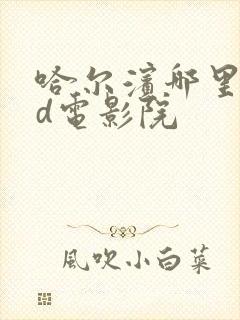 哈尔濱哪里
d電影院
風吹小白菜